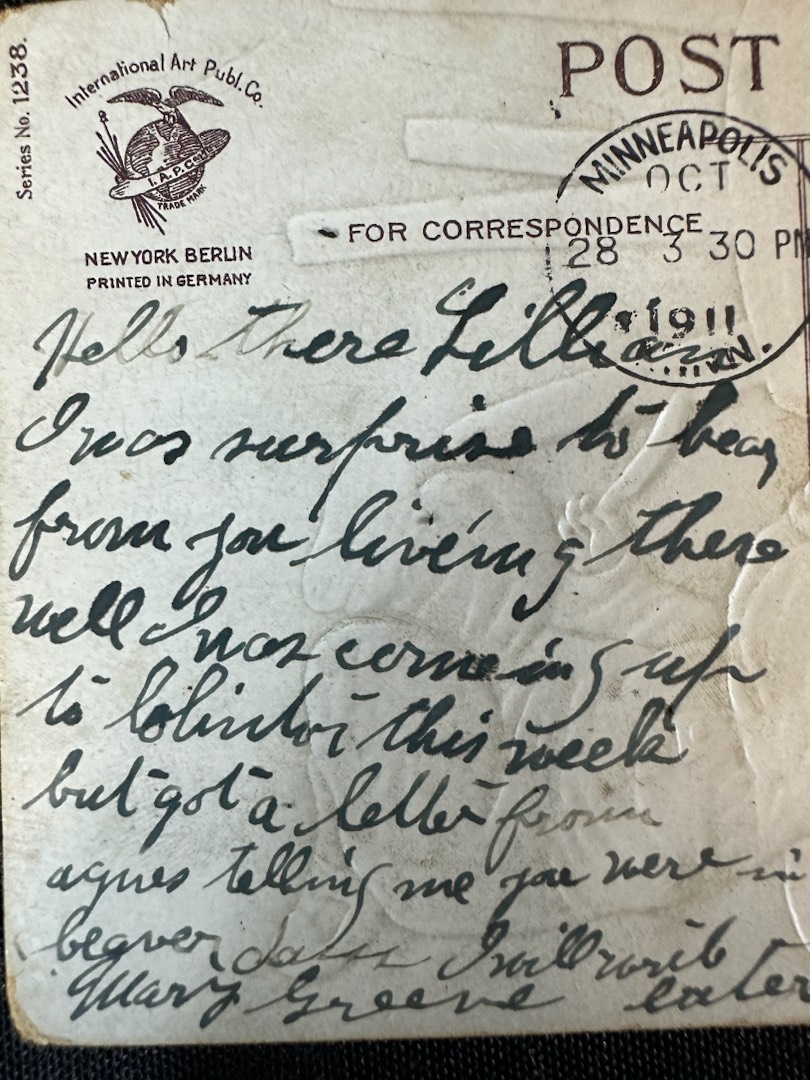 Series No. 1238.
International Art Publ. Co.
I. A. P. Co.
TRADE MARK
NEW YORK BERLIN
PRINTED IN GERMANY
POST
FOR CORRESPONDENCE
MINNEAPOLIS
OCT
28 3 30 PM
1911
Hello there Lillian
I was surprise to hear
from you liveing there
well I was comeing up
to this week
but got a letter from
agnes telling me you were in
beaver dam I will write
Mary Greene later